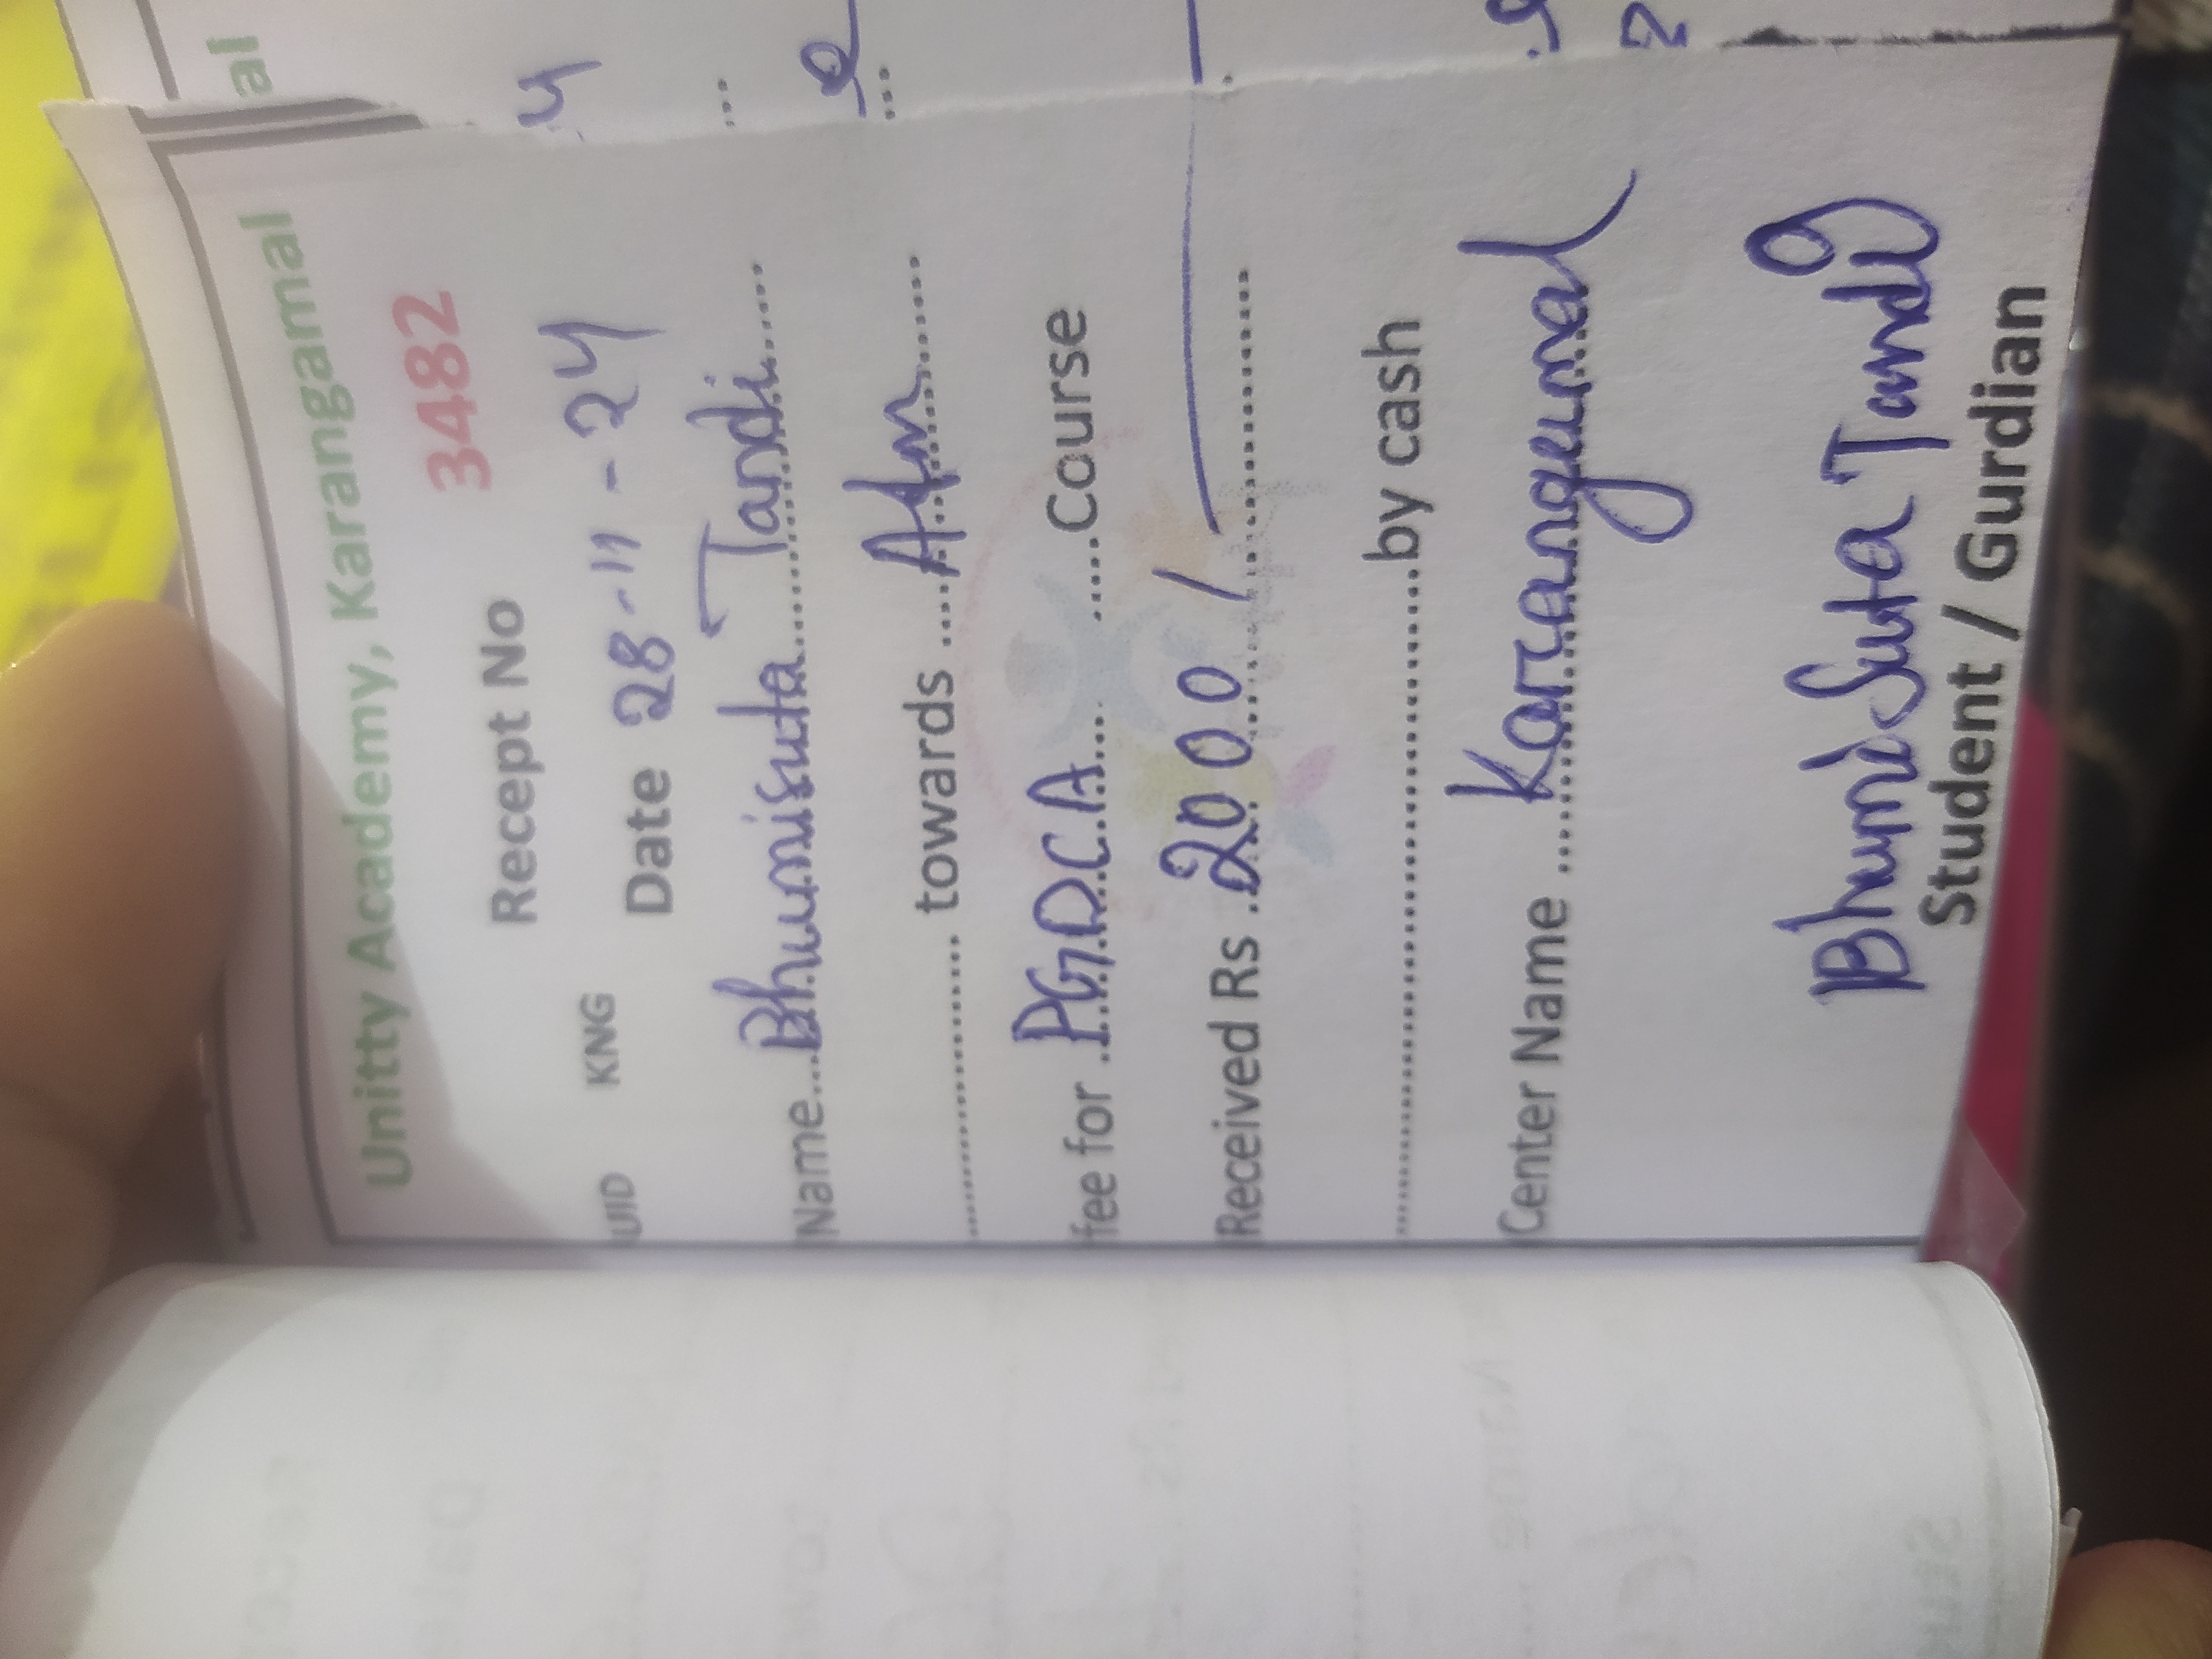 Unitty Academy, Karangamal
Recept No 3482
UID KNG Date 28-11-24
Name....Bhumisuta Tandi.....
............... towards ....Adm......
fee for ..PGDCA.... .....Course
Received Rs .2000/
................................by cash
Center Name ....Karangamal
Bhumisuta Tandi
Student / Gurdian
al